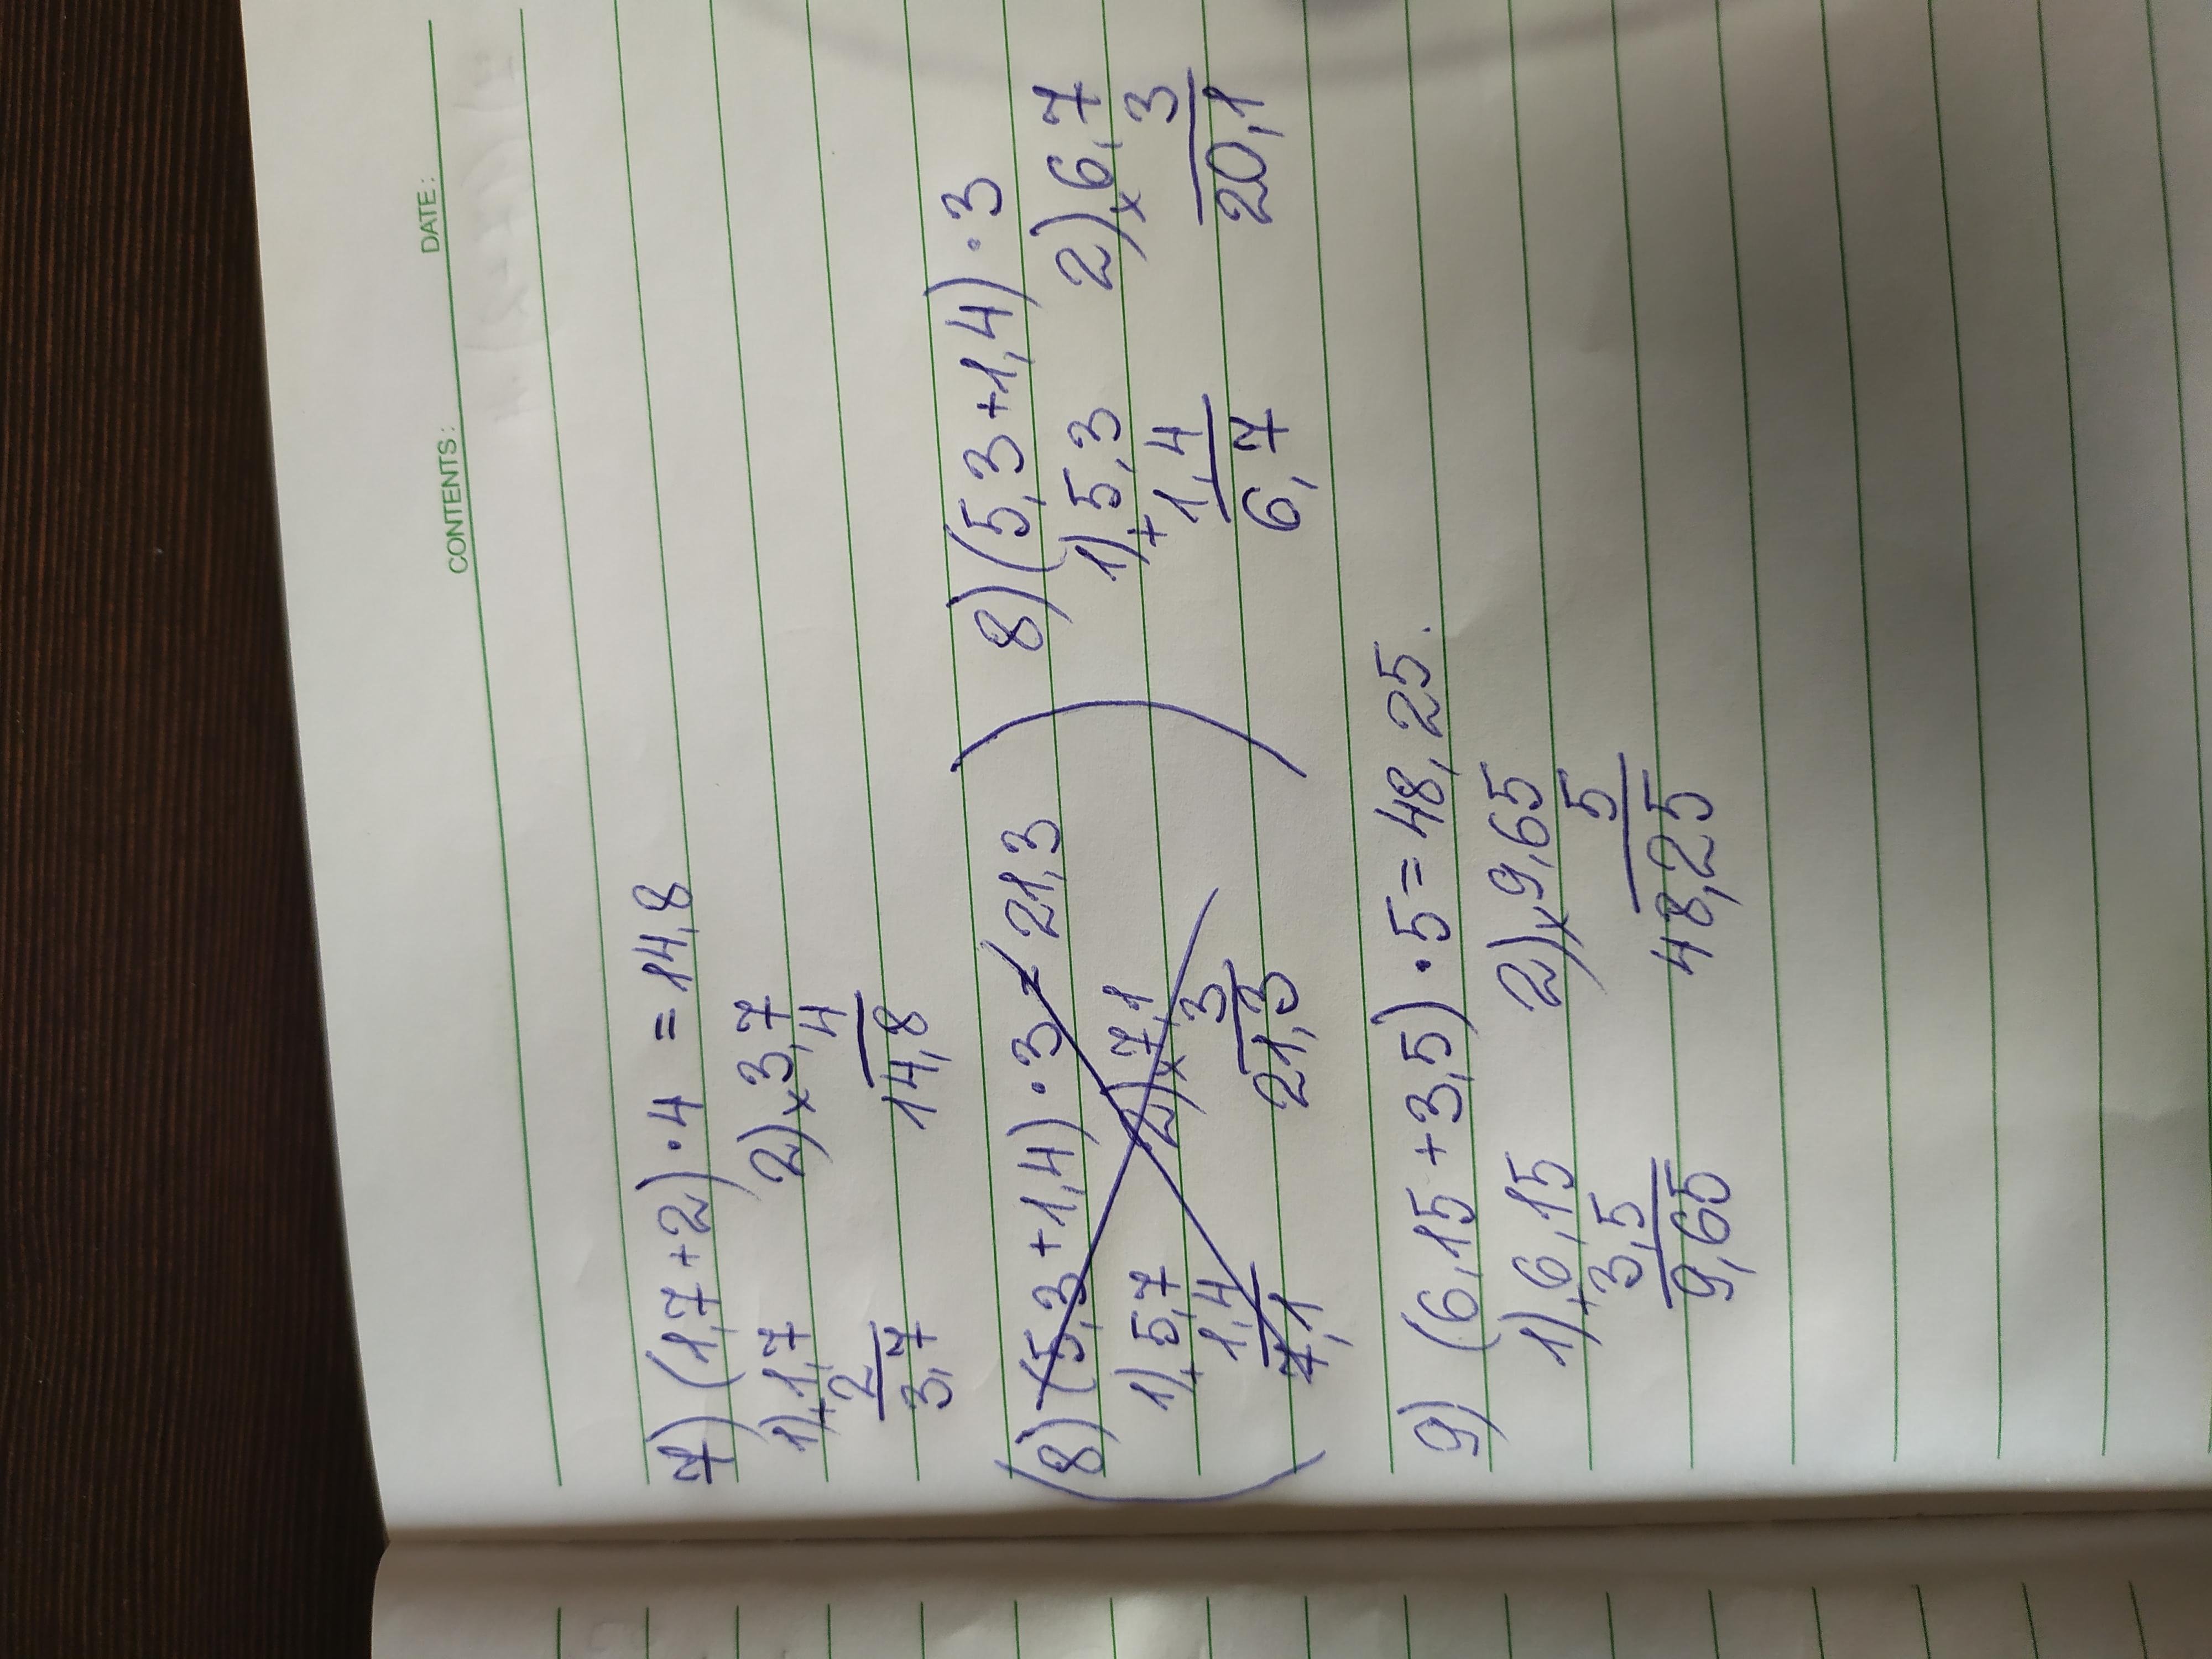 CONTENTS: DATE:
7) (1,7+2)·4 = 14,8
1) 1,7 2) 3,7
+ 2 × 4
3,7 14,8
(8) (5,3+1,4)·3 = 21,3
1) 5,7 2) 7,1
+ 1,4 × 3
7,1 21,3 )
8) (5,3+1,4)·3
1) 5,3 2) 6,7
+ 1,4 × 3
6,7 20,1
9) (6,15+3,5)·5=48,25.
1) 6,15 2) 9,65
+ 3,5 × 5
9,65 48,25